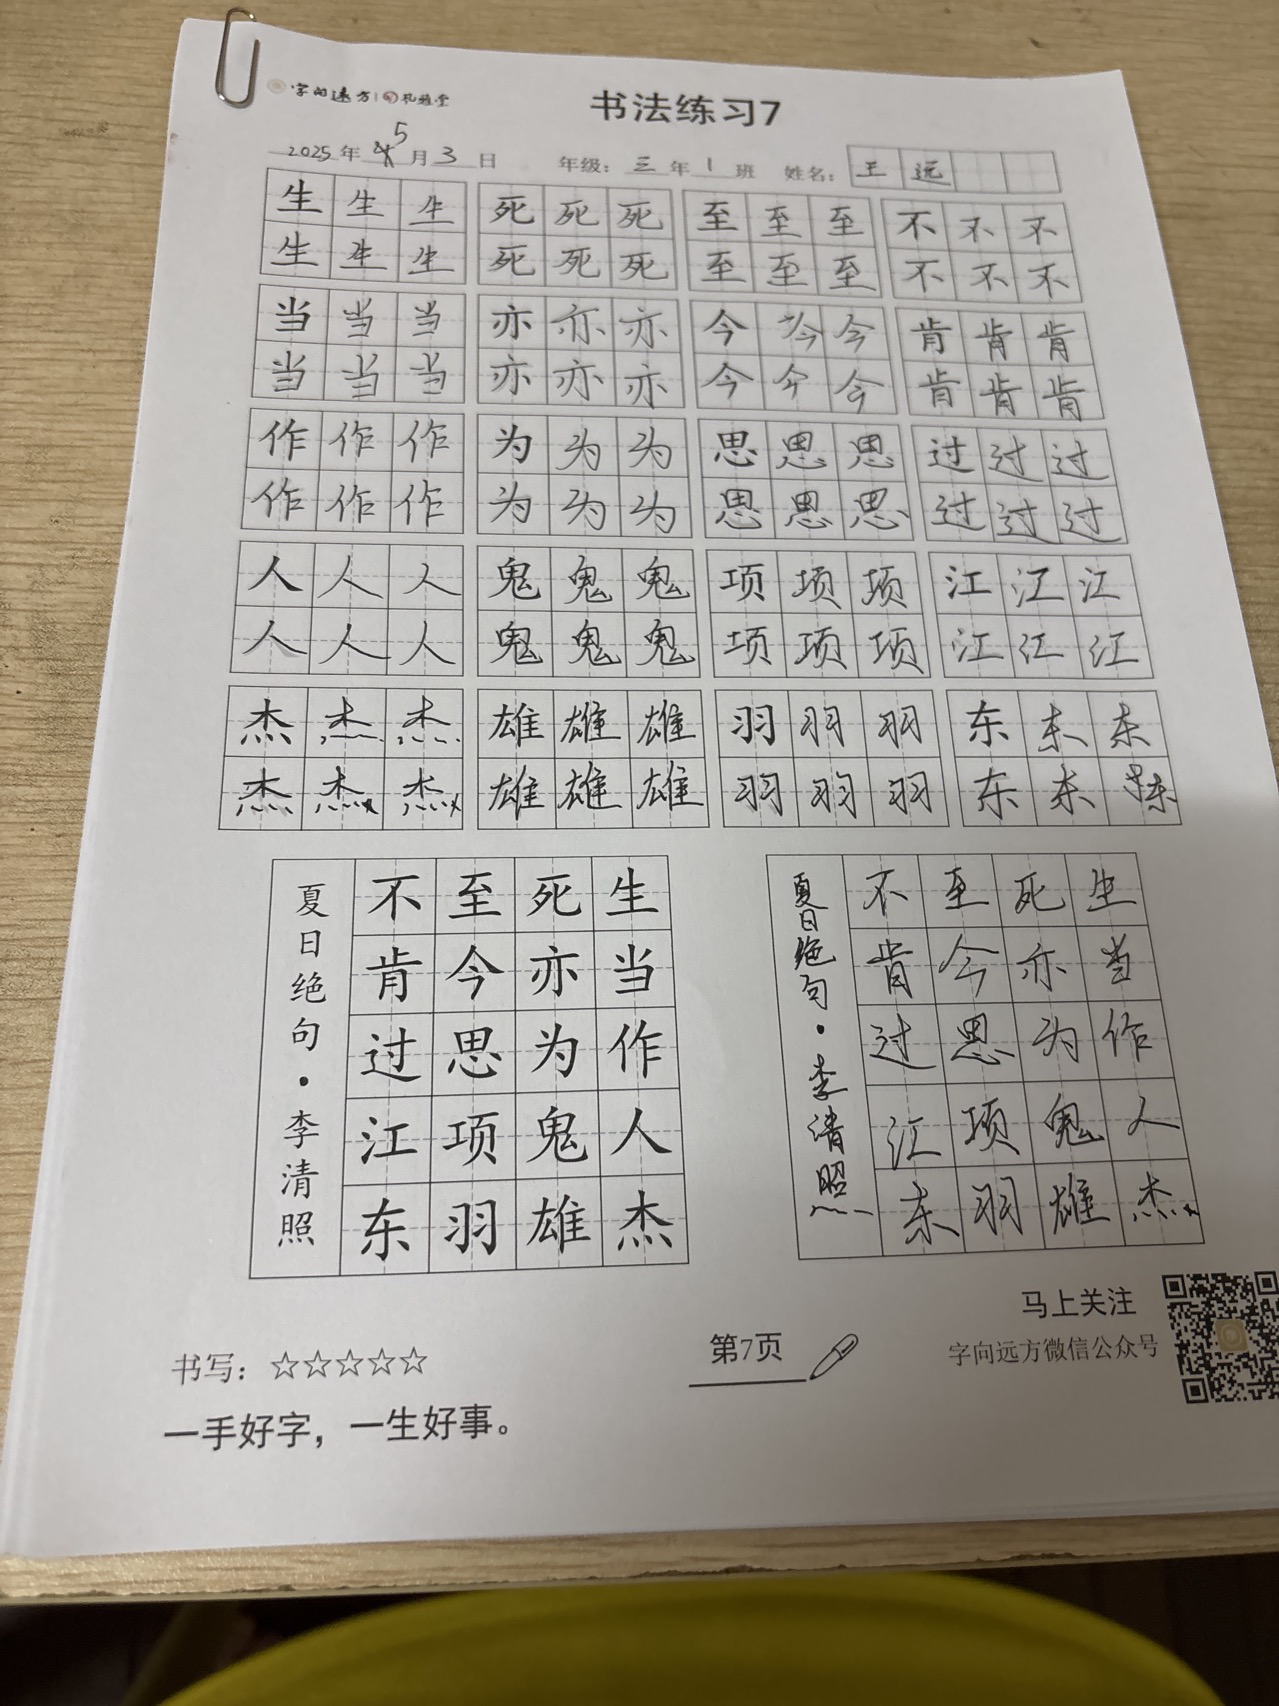 字向远方 礼雅堂
书法练习7
2025年5月3日 年级：三年1班 姓名：王远
生生生 死死死 至至至 不不不
生生生 死死死 至至至 不不不
当当当 亦亦亦 今今今 肯肯肯
当当当 亦亦亦 今今今 肯肯肯
作作作 为为为 思思思 过过过
作作作 为为为 思思思 过过过
人人人 鬼鬼鬼 项项项 江江江
人人人 鬼鬼鬼 项项项 江江江
杰杰杰 雄雄雄 羽羽羽 东东东
杰杰杰 雄雄雄 羽羽羽 东东东
生当作人杰
死亦为鬼雄
至今思项羽
不肯过江东
夏日绝句·李清照
生当作人杰
死亦为鬼雄
至今思项羽
不肯过江东
夏日绝句·李清照
书写：☆☆☆☆☆
一手好字，一生好事。
第7页
马上关注
字向远方微信公众号